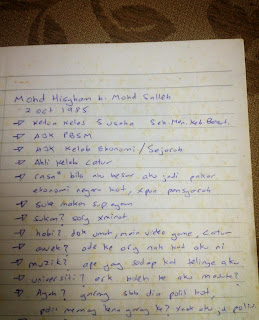 Mohd Hisyham b. Mohd Salleh
2 oct 1985
→ Ketua Kelas 5 usaha Sek. Men. Keb
→ AJK PBSM
→ AJK Kelab Ekonomi / Sejarah
→ Ahli Kelab Catur
→ rasa² bila aku besar aku jadi pakar
ekonomi negara kot, xpun pensyarah
→ suke makan sup ayam
→ sukan? sorg xminat
→ hobi? tdk umah, main video game, catur
→ awek? ade ke org nak kat aku ni
→ muzik? ape yang sedap kat telinga aku
→ universiti? ark boleh ke aku masuk?
→ Ayah? garang sbb dia polis kot,
polis memang kena garang ke? xnak aku jd polis